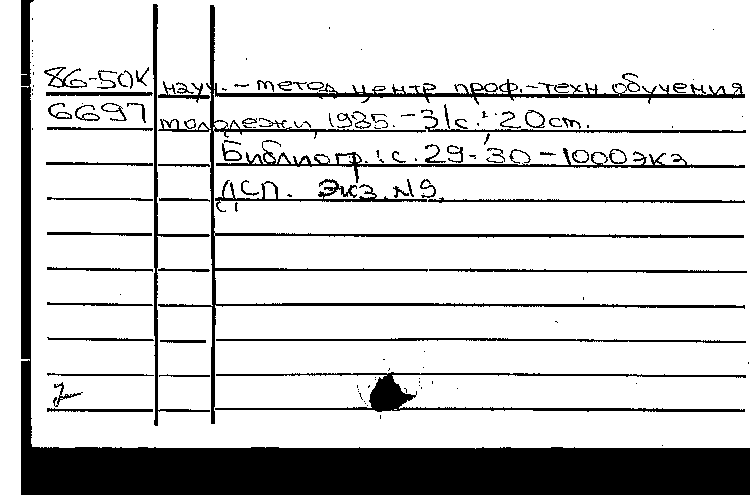 86-50К науч.-метод центр проф.-техн обучения
6697 молодежи, 1985.-31с.; 20см.
Библиогр.: с. 29-30-1000экз
ДСП. Экз. N9.
2